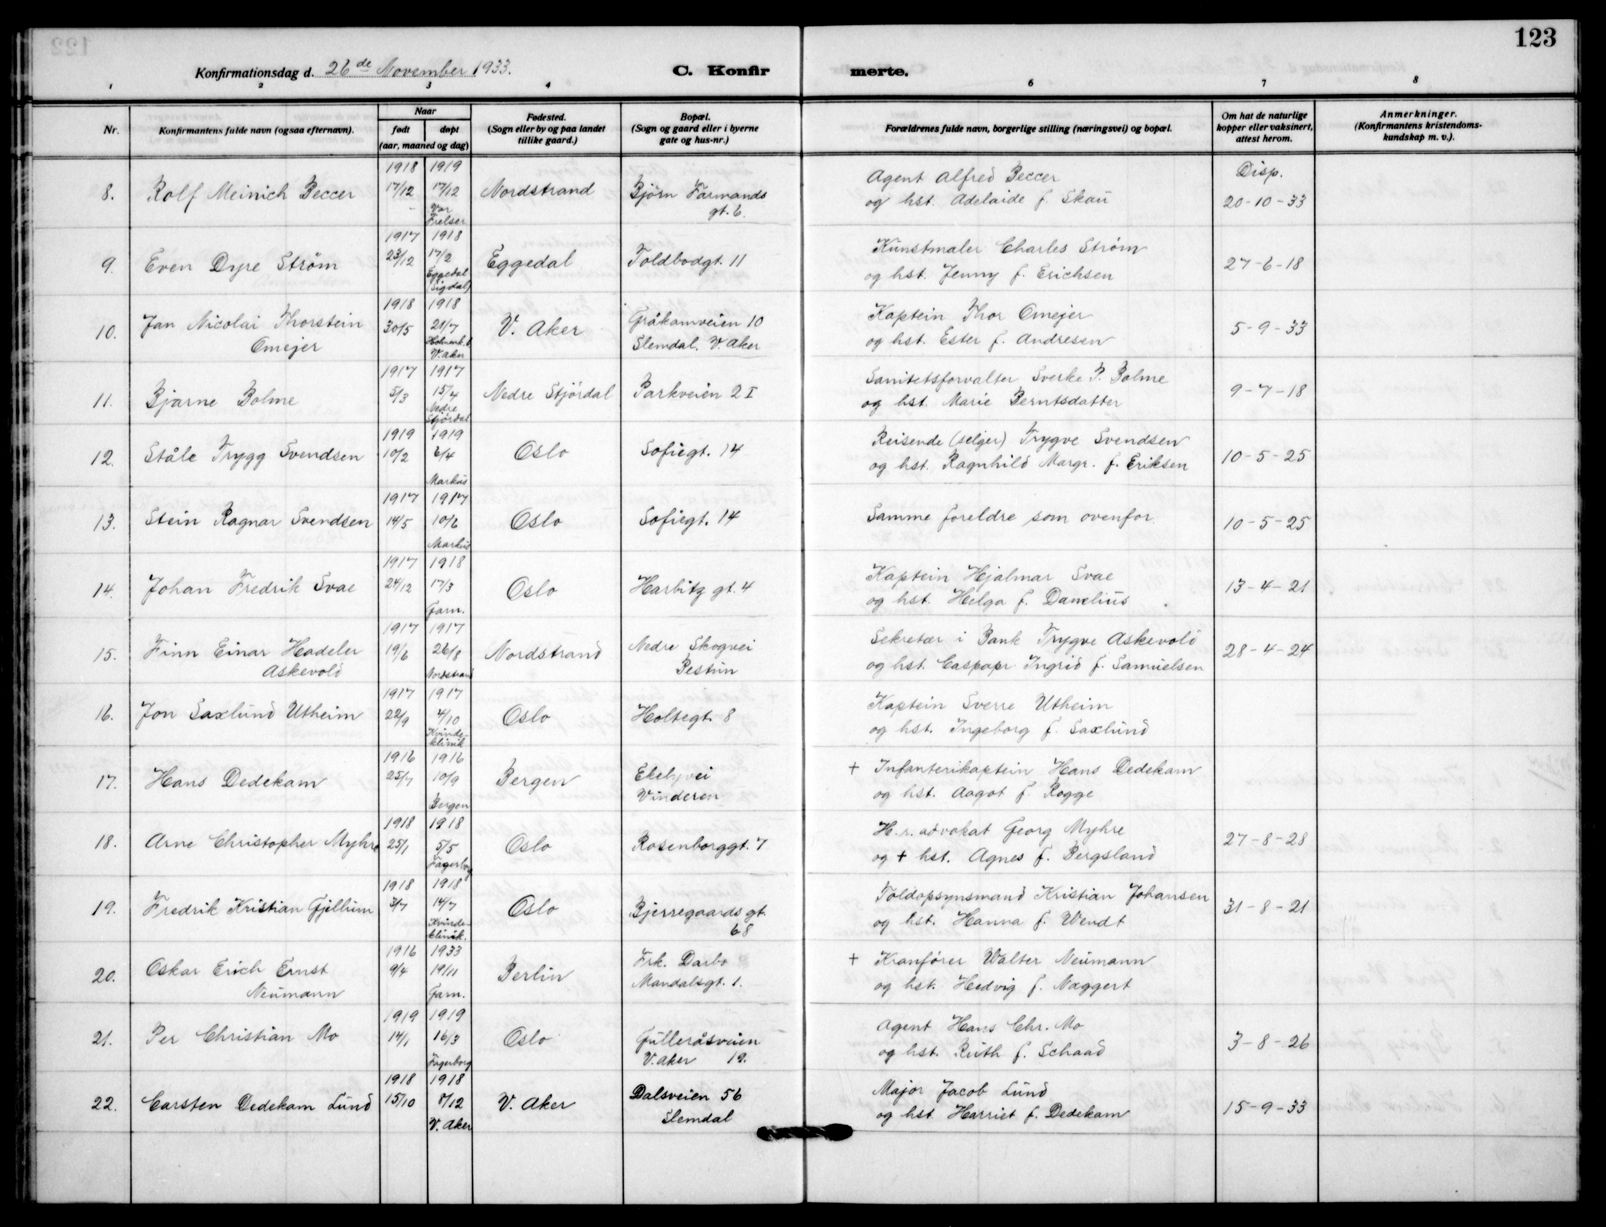 123
Konfirmationsdag d. 26de November 1933.
C. Konfirmerte.
1 2 3 4 6 7 8
Nr.
Konfirmantens fulde navn (ogsaa efternavn).
Naar
født døpt
(aar, maaned og dag)
Fødested.
(Sogn eller by og paa landet
tillike gaard.)
Bopæl.
(Sogn og gaard eller i byerne
gate og hus-nr.)
Forældrenes fulde navn, borgerlige stilling (næringsvei) og bopæl.
Om hat de naturlige
kopper eller vaksinert,
attest herom.
Anmerkninger.
(Konfirmantens kristendoms-
kundskap m. v.).
1918 1919
8. Rolf Meinich Beccer 17/12 17/12 Nordstrand Bjørn Farmands
gt. 6.
Vor
Frelser
Agent Alfred Beccer
og hst. Adelaide f. Skau
Disp.
20-10-33
1917 1918
9. Even Dyre Strøm 23/12 17/2 Eggedal Toldbodgt. 11
Eggedal
Sigdal
Kunstmaler Charles Strøm
og hst. Jenny f. Erichsen
27-6-18
1918 1918
10. Jan Nicolai Thorstein
Omejer
30/5 21/7 V. Aker Gråkamveien 10
Slemdal. V. Aker
V. Aker
Kaptein Thor Omejer
og hst. Ester f. Andresen
5-9-33
1917 1917
11. Bjarne Bolme 5/3 15/4 Nedre Stjørdal Parkveien 2 I
Nedre
Stjørdal
Sanitetsforvalter Sverke P. Bolme
og hst. Marie Berntsdatter
9-7-18
1919 1919
12. Ståle Trygg Svendsen 10/2 6/4 Oslo Sofiegt. 14
Markus
Reisende (selger) Trygve Svendsen
og hst. Ragnhild Margr. f. Eriksen
10-5-25
1917 1917
13. Stein Ragnar Svendsen 14/5 10/6 Oslo Sofiegt. 14
Markus
Samme foreldre som ovenfor
10-5-25
1917 1918
14. Johan Fredrik Svae 24/12 17/3 Oslo Harbitz gt. 4
Garn.
Kaptein Hjalmar Svae
og hst. Helga f. Danelius
13-4-21
1917 1917
15. Finn Einar Hadeler
Askevold
19/6 26/8 Nordstrand Nedre Skogvei
Pestun
Nordstrand
Sekretær i Bank Trygve Askevold
og hst. Caspara Ingrid f. Samuelsen
28-4-24
1917 1917
16. Jon Saxlund Utheim 22/9 4/10 Oslo Holtegt. 8
Kvinde-
klinik
Kaptein Sverre Utheim
og hst. Ingeborg f. Saxlund
1916 1916
17. Hans Dedekam 25/7 10/9 Bergen Ekelyvei
Vinderen
Bergen
+ Infanterikaptein Hans Dedekam
og hst. Aagot f. Rogge
1918 1918
18. Arne Christopher Myhre 25/1 5/5 Oslo Rosenborggt. 7
Fagerborg
H.r. advokat Georg Myhre
og + hst. Agnes f. Bergsland
27-8-28
1918 1918
19. Fredrik Kristian Gjellum 3/7 14/7 Oslo Bjerregaards gt.
68
Kvinde-
klinik.
Toldopsynsmand Kristian Johansen
og hst. Hanna f. Wendt
31-8-21
1916 1933
20. Oskar Erich Ernst
Neumann
9/4 19/11 Berlin Frk. Darbo
Mandalsgt. 1.
Garn.
+ Kranfører Walter Neumann
og hst. Hedvig f. Naggert
1919 1919
21. Per Christian Mo 14/1 16/3 Oslo Gulleråsveien
V. Aker 19.
Fagerborg
Agent Hans Chr. Mo
og hst. Ruth f. Schaad
3-8-26
1918 1918
22. Carsten Dedekam Lund 15/10 8/12 V. Aker Dalsveien 56
Slemdal
V. Aker
Major Jacob Lund
og hst. Harriet f. Dedekam
15-9-33